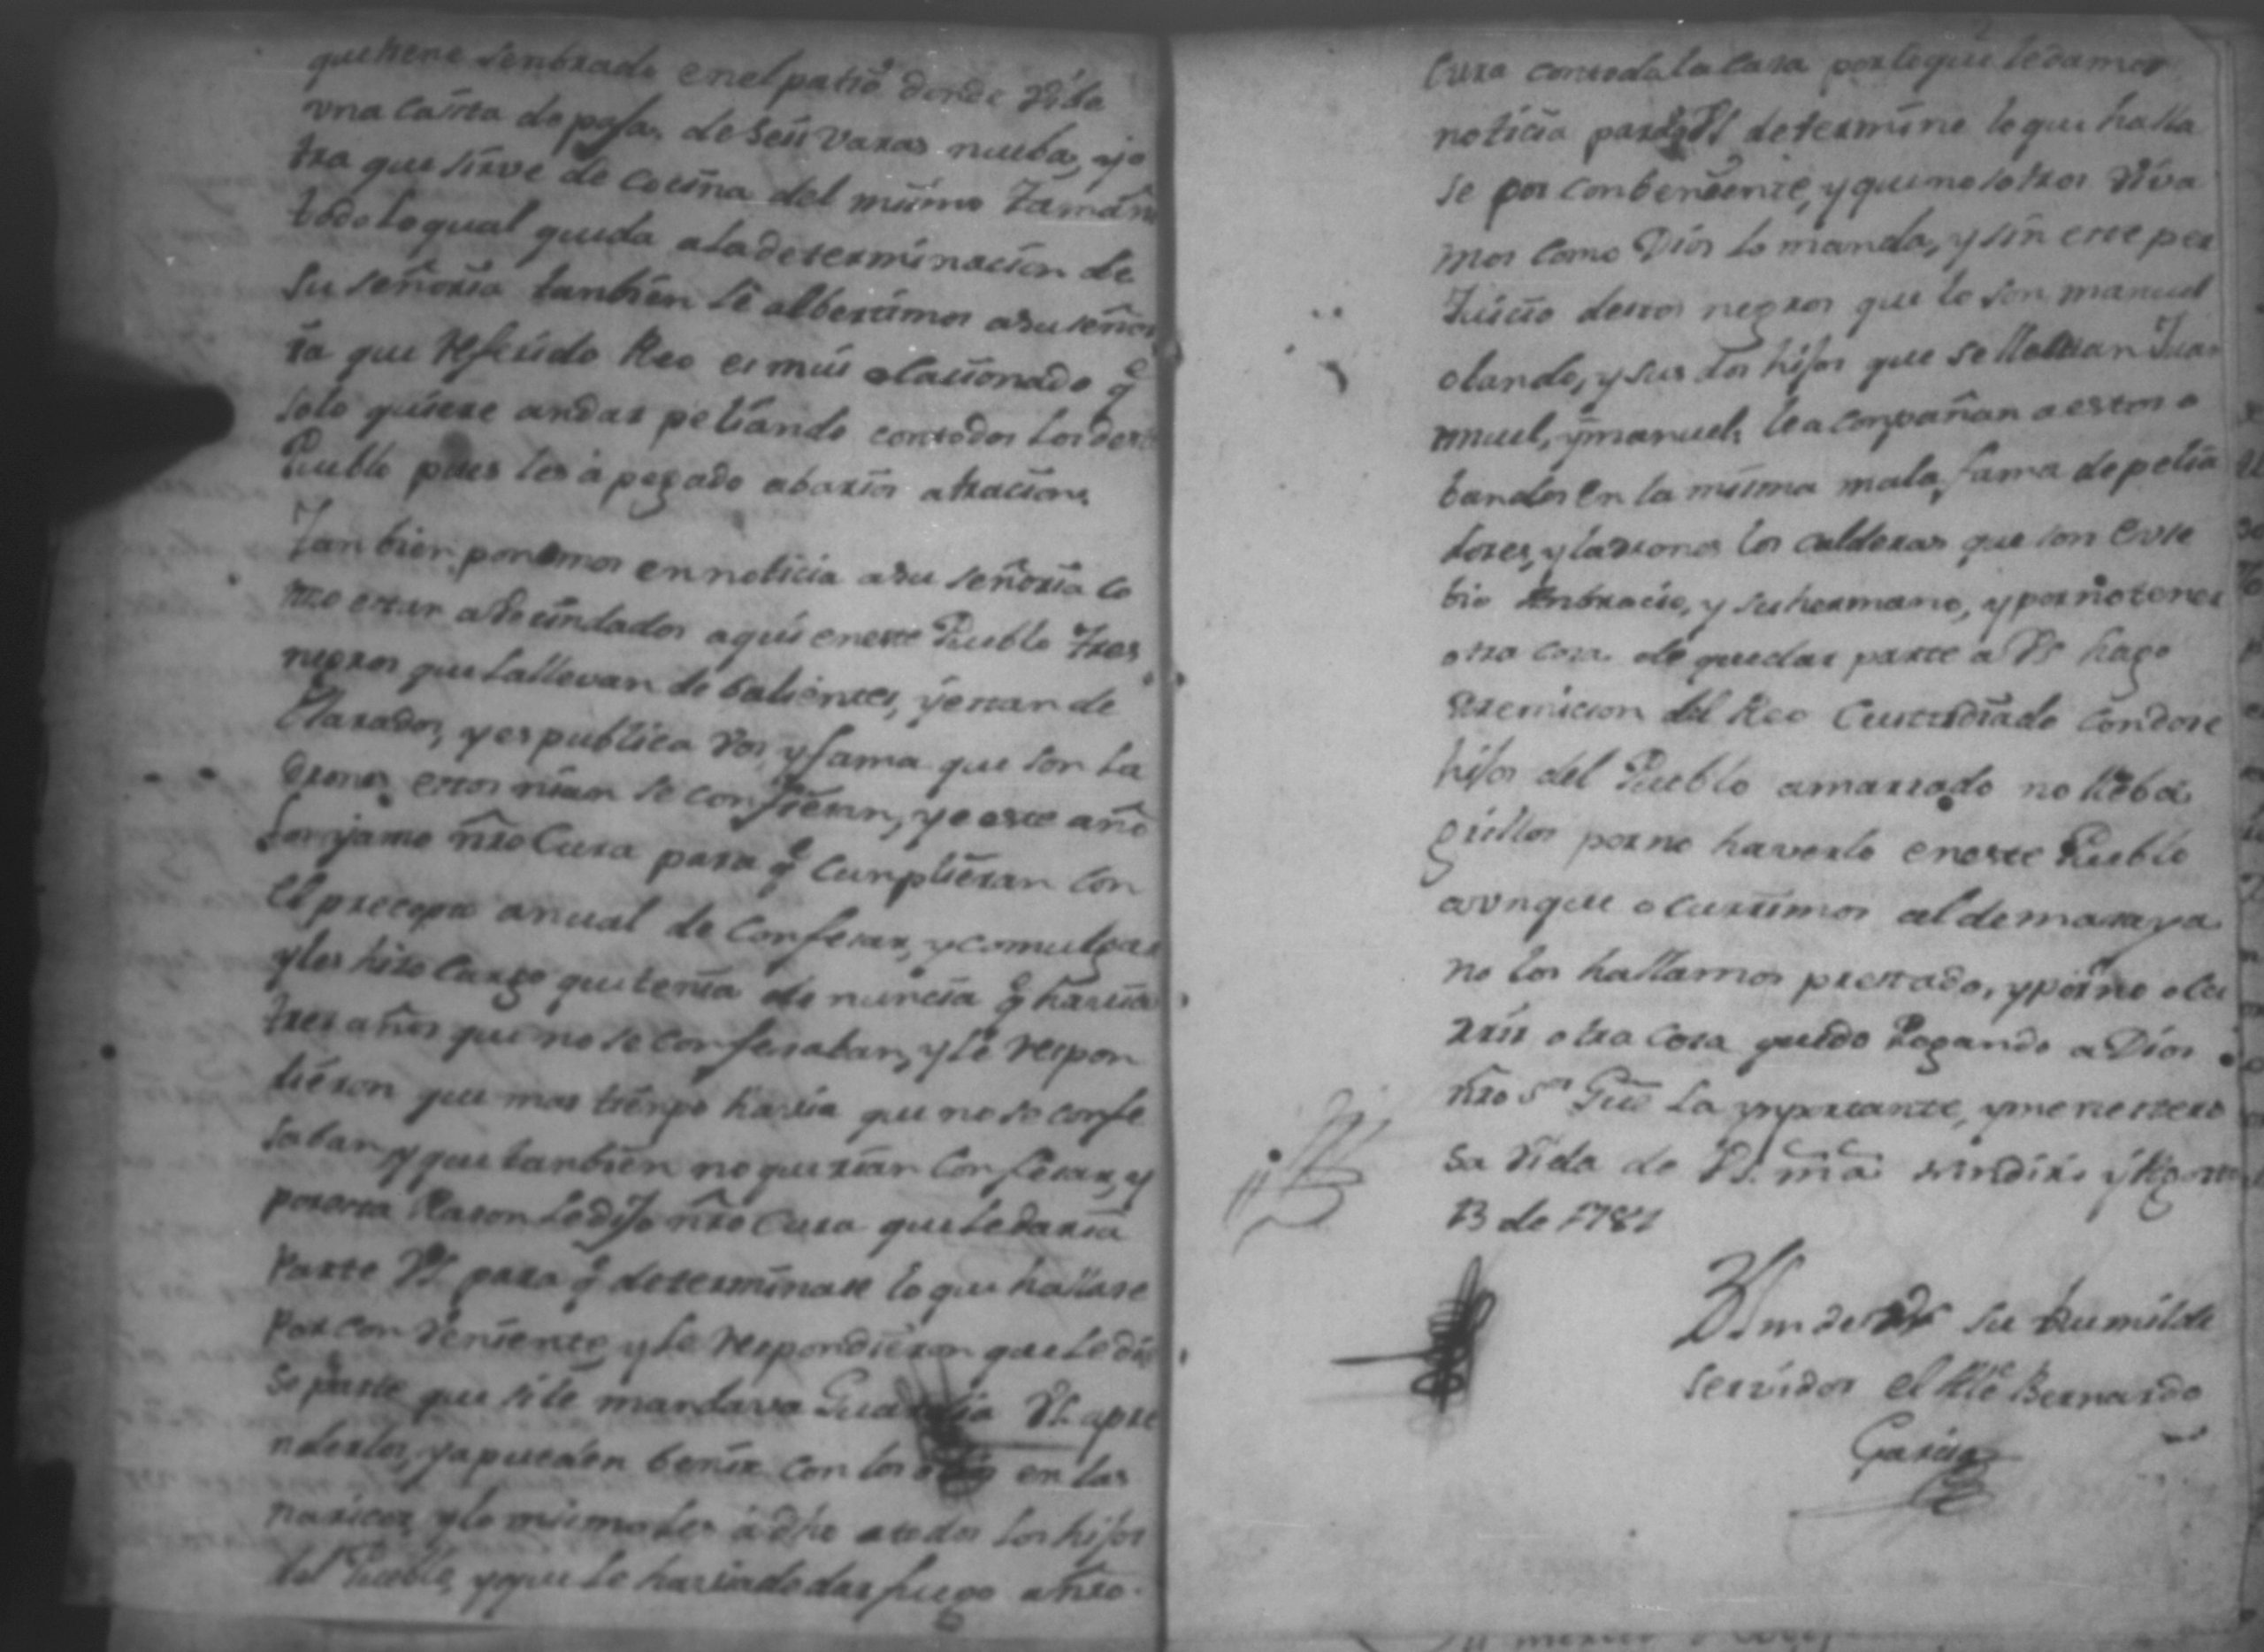 que tiene senbrado en el patio donde Vibe
una casita de pajas de seis varas nueba, y o
tra que sirve de cocina del mismo tamañ
todo lo qual queda a la determinacion de
su señoria tanbien le albertimos a su seño
ria que Referido Reo es mui ocacionado q^e
solo quiere andar peliando con todos los de
Pueblo pues les à pegado a barios a traicion.
Tanbien ponemos en noticia a su señoria co
mo estar abecindados aqui en este Pueblo tres
negros que la llevan de balientes, y estan de
clarados, y es publica Vos, y fama que son la
drones estos nican se confiesan, y este año
nro Cura para q^e cunplieran con
el precepto anual de confesar, y comulgar
y les hizo cargo que tenia de nuncia q^e havia
tres años que no se confesaban, y le respon
dieron que mas tienpo havia que no se confe
saban y que tanbien no querian confesar, y
por esta Rason le dijo nro Cura que le daria
Parte VS. para q^e determinase lo que hallase
por conveniente, y le respondieron que le di
se parte que si le mandava VS. apre
nderlos, ya pueden benir con los en las
narices, y lo mismo les à dho a todos los hijos
del Pueblo, y que le havia de dar fuego a nro
Cura con toda la casa por lo que le damos
noticia para q^e VS determine lo que halla
se por conbeniente, y que nosotros Viva
mos como Dios lo manda, y sin este per
juicio destos negros que lo son manuel
olando, y sus dos hijos que se llaman Juan
manuel, y manuel, le aconpañan a estos o
bandos en la misma mala fama de pelia
dores, y ladrones los calderas que son Euse
bio Anbracio, y su hermano, y por no tener
otra cosa de que dar parte a VS hago
Rremicion del Reo Custodiado con dose
hijos del Pueblo amarrado no lleba
grillos por no haverlo en este Pueblo
avnque ocurrimos al de maraya
no los hallamos prestado, y por no ocu
rrir otra cosa quedo Rogando a Dios
nro S^r Gue la ynportante, y menestero
sa Vida de VS. m^s a^s y Agosto
13 de 1781
BSm de VS su humilde
servidor el Alc^e Bernardo
Garcia